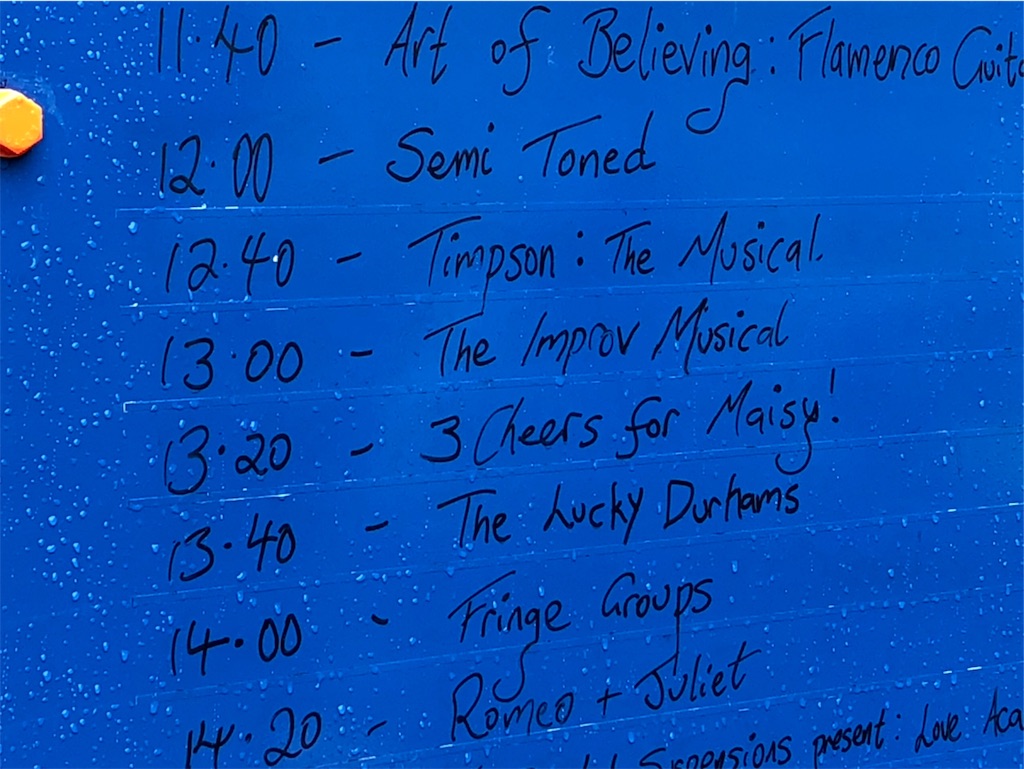 11.40 - Art of Believing: Flamenco
12.00 - Semi Toned
12.40 - Timpson: The Musical.
13.00 - The Improv Musical
13.20 - 3 Cheers for Maisy!
13.40 - The Lucky Durhams
14.00 - Fringe Groups
14.20 - Romeo + Juliet
Suspensions present: Love